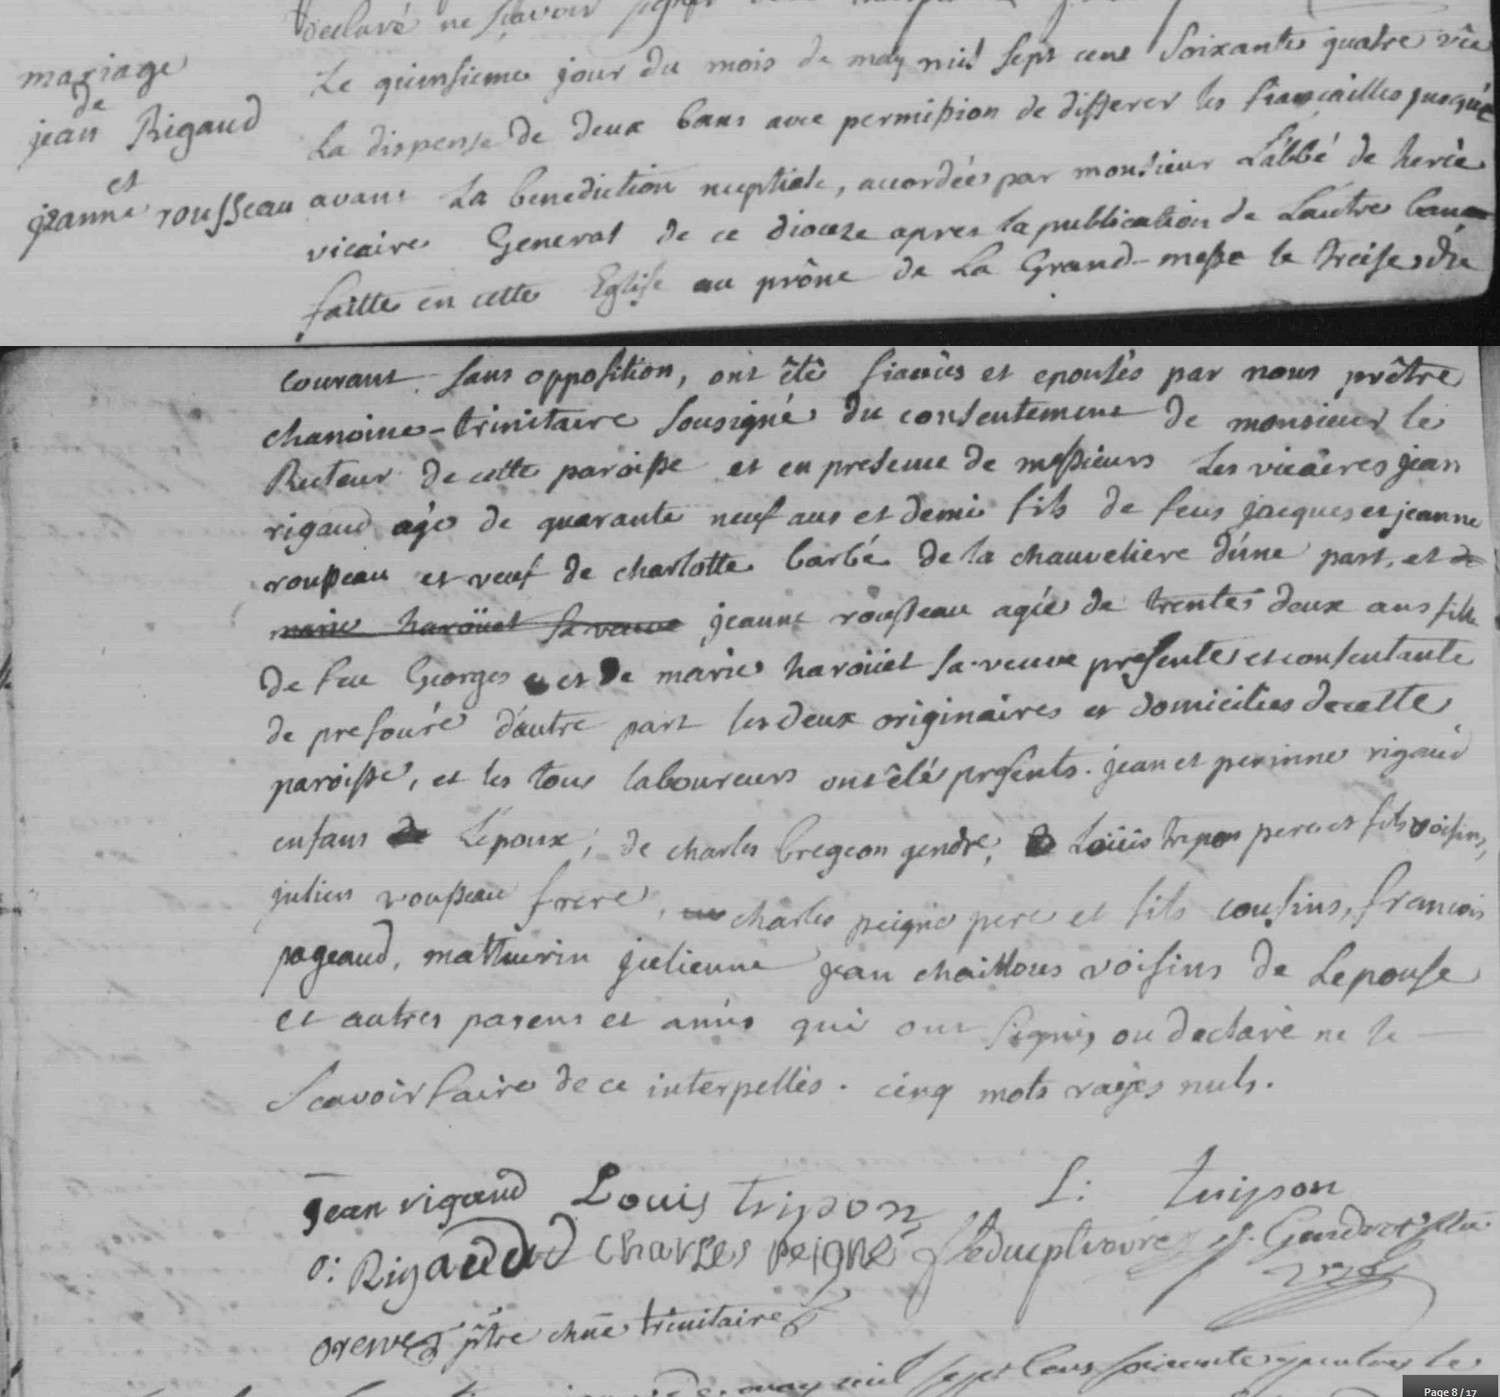 declaré ne sçavoir
mariage
de
jean Rigaud
et
jeanne rousseau
Le quinsieme jour du mois de may mil sept cent soixante quatre vûe
La dispense de deux bans avec permission de differer les fiançailles jusqu'à
avant La benediction nuptiale, accordées par monsieur L'abbé de hercé
vicaire General de ce dioceze apres la publication de L'autre ban
faitte en cette Eglise au prône de La Grand-messe le treise du
courant sans opposition, ont êtê fiancés et epousés par nous prêtre
chanoine-trinitaire sousigné du consentement de monsieur le
Recteur de cette paroisse et en presence de messieurs Les vicaires jean
rigaud agé de quarante neuf ans et demi fils de feus jacques et jeanne
rousseau et veuf de charlotte barbé de la chauveliere d'une part, et de
marie haroüet sa veuve jeanne rousseau agée de trente deux ans fille
de feu Georges et de marie haroüet sa veuve presente et consentante
de presouré d'autre part les deux originaires et domiciliés de cette
paroisse, et les tous laboureurs ont êlé presents. jean et perinne rigaud
enfans de L'epoux, de charles bregeon gendre, Loüis tripon pere et fils voisins,
julien rousseau frere, charles peigné pere et fils cousins, francois
pageaud, mathurin julienne jean chaillous voisins de L'epouse
et autres parens et amis qui ont signés ou declaré ne le
scavoir faire de ce interpellés. cinq mots rayés nuls.
jean rigaud Louis tripon L: tripon
o: Rigaudad Charles peigné
pstre chne trinitaire
may mil sept cens soixante quatre le
Page 8 / 17